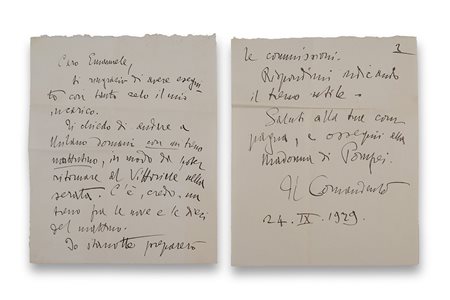 Caro Emanuele,
ti ringrazio di avere esegui-
to con tanto zelo il mio
incarico.
Ti chiedo di andare a
Milano domani con un treno
mattutino, in modo da poter
ritornare al Vittoriale nella
serata. C'è, credo, un
treno fra le nove e le dieci
del mattino.
Io stanotte preparerò
2
le commissioni.
Rispondimi indicando
il treno utile.
Saluti alla tua com-
pagna, e ossequii alla
Madonna di Pompei.
Il Comandante
24. IX. 1929.